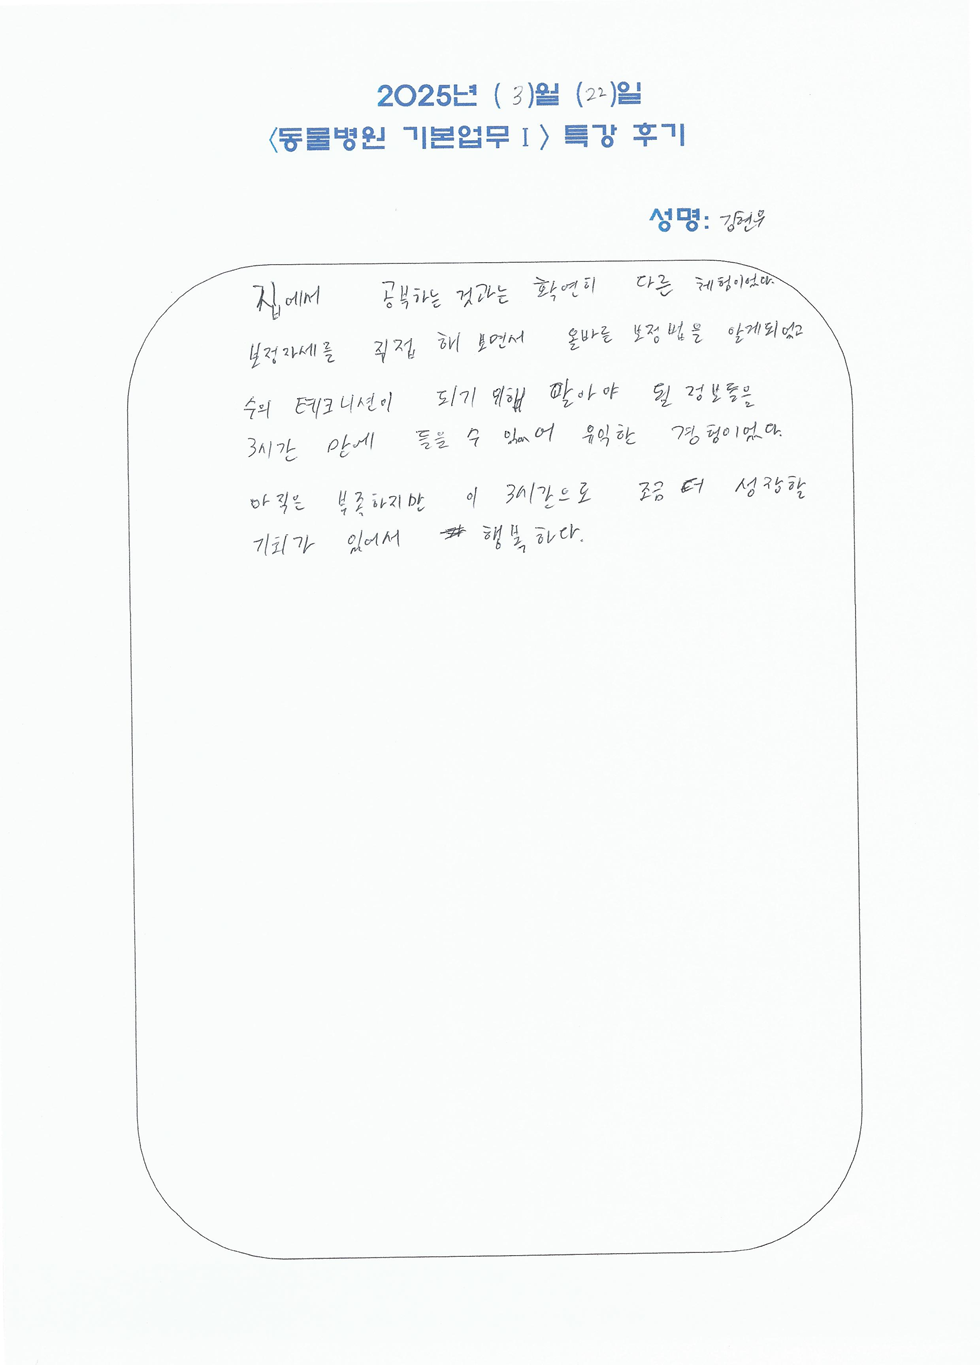 2025년 (3)월 (22)일
<동물병원 기본업무 I> 특강 후기
성명: 김현우
집에서 공부하는 것과는 확연히 다른 체험이었다.
보정자세를 직접 해 보면서 올바른 보정법을 알게되었고
수의 테크니션이 되기 위해 알아야 될 정보들을
3시간 만에 들을 수 있어 유익한 경험이었다.
아직은 부족하지만 이 3시간으로 조금 더 성장할
기회가 있어서 행복하다.